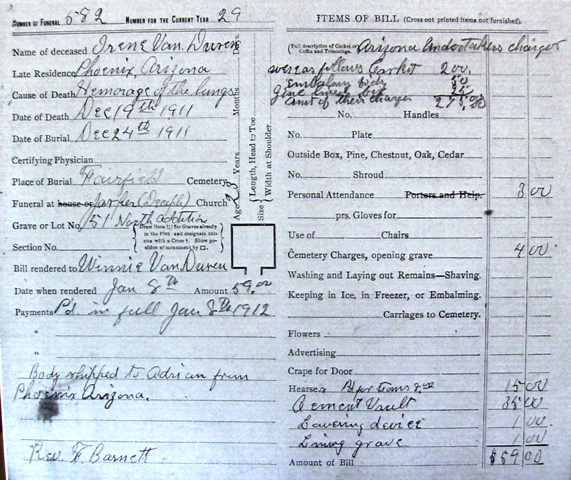 NUMBER OF FUNERAL 582 NUMBER FOR THE CURRENT YEAR 29
Name of deceased Irene Van Duren
Late Residence Phoenix, Arizona
Cause of Death Hemorage of the lungs
Date of Death Dec 19th 1911
Date of Burial Dec 24th 1911
Certifying Physician
Place of Burial Fairfield Cemetery
Funeral at house or (Disciple) Church
Grave or Lot No. 51 North addition
Section No.
(Draw lines for Graves already in the Plot and designate this one with a Cross †. Show position of monument by □.)
Age Years Months Days
Size Length, Head to Toe
Width at Shoulder
Bill rendered to Winnie Van Duren
Date when rendered Jan 8th Amount 59.00
Payments Pd. in full Jan 8th 1912
"
"
Body shipped to Adrian from
Phoenix Arizona.
Rev. F. Barnett.
ITEMS OF BILL (Cross out printed items not furnished).
(Full description of Casket or Coffin and Trimmings.) Arizona Undertakers charges
were as follows Casket 200.
embalming body 50
box 25
amt of their charges 275.00
No. Handles
No. Plate
Outside Box, Pine, Chestnut, Oak, Cedar
No. Shroud
Personal Attendance Porters and Help. 3 00
prs. Gloves for
Use of Chairs
Cemetery Charges, opening grave 4 00
Washing and Laying out Remains—Shaving.
Keeping in Ice, in Freezer, or Embalming.
Carriages to Cemetery.
Flowers
Advertising
Crape for Door
Hearse 15 00
Cement Vault 35 00
Lowering device 1 00
Lining grave 1 00
Amount of Bill $59 00